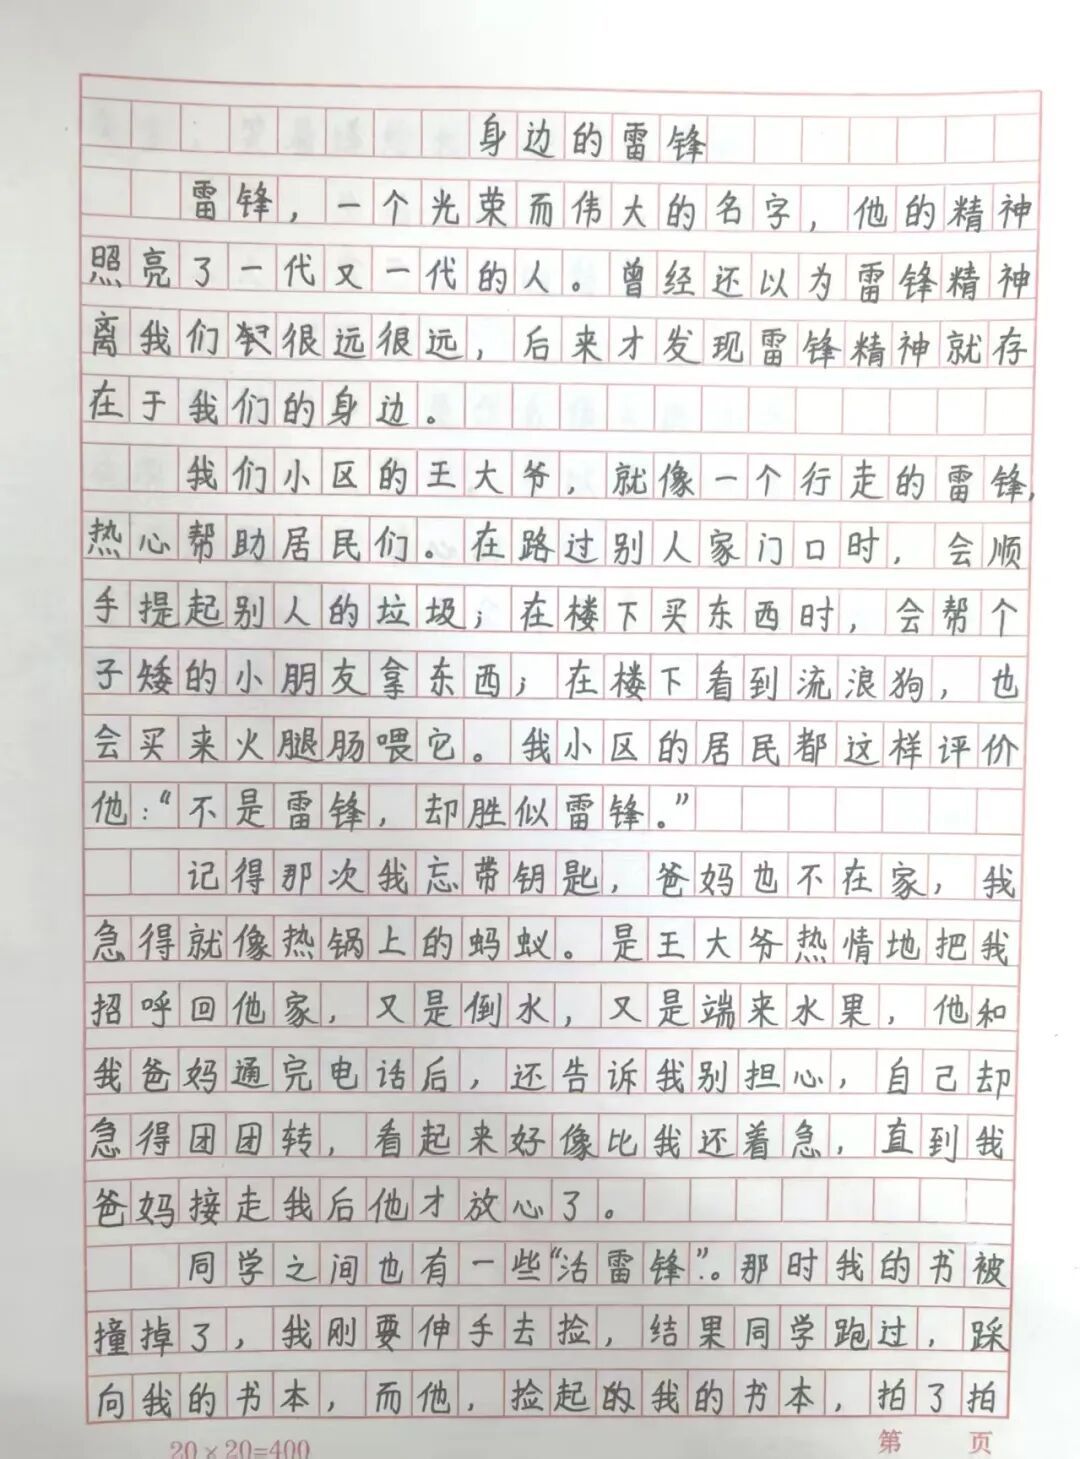 身边的雷锋
雷锋，一个光荣而伟大的名字，他的精神
照亮了一代又一代的人。曾经还以为雷锋精神
离我们很远很远，后来才发现雷锋精神就存
在于我们的身边。
我们小区的王大爷，就像一个行走的雷锋，
热心帮助居民们。在路过别人家门口时，会顺
手提起别人的垃圾；在楼下买东西时，会帮个
子矮的小朋友拿东西；在楼下看到流浪狗，也
会买来火腿肠喂它。我小区的居民都这样评价
他：“不是雷锋，却胜似雷锋。”
记得那次我忘带钥匙，爸妈也不在家，我
急得就像热锅上的蚂蚁。是王大爷热情地把我
招呼回他家，又是倒水，又是端来水果，他和
我爸妈通完电话后，还告诉我别担心，自己却
急得团团转，看起来好像比我还着急，直到我
爸妈接走我后他才放心了。
同学之间也有一些“活雷锋”。那时我的书被
撞掉了，我刚要伸手去捡，结果同学跑过，踩
向我的书本，而他，捡起我的书本，拍了拍
20×20=400
第 页